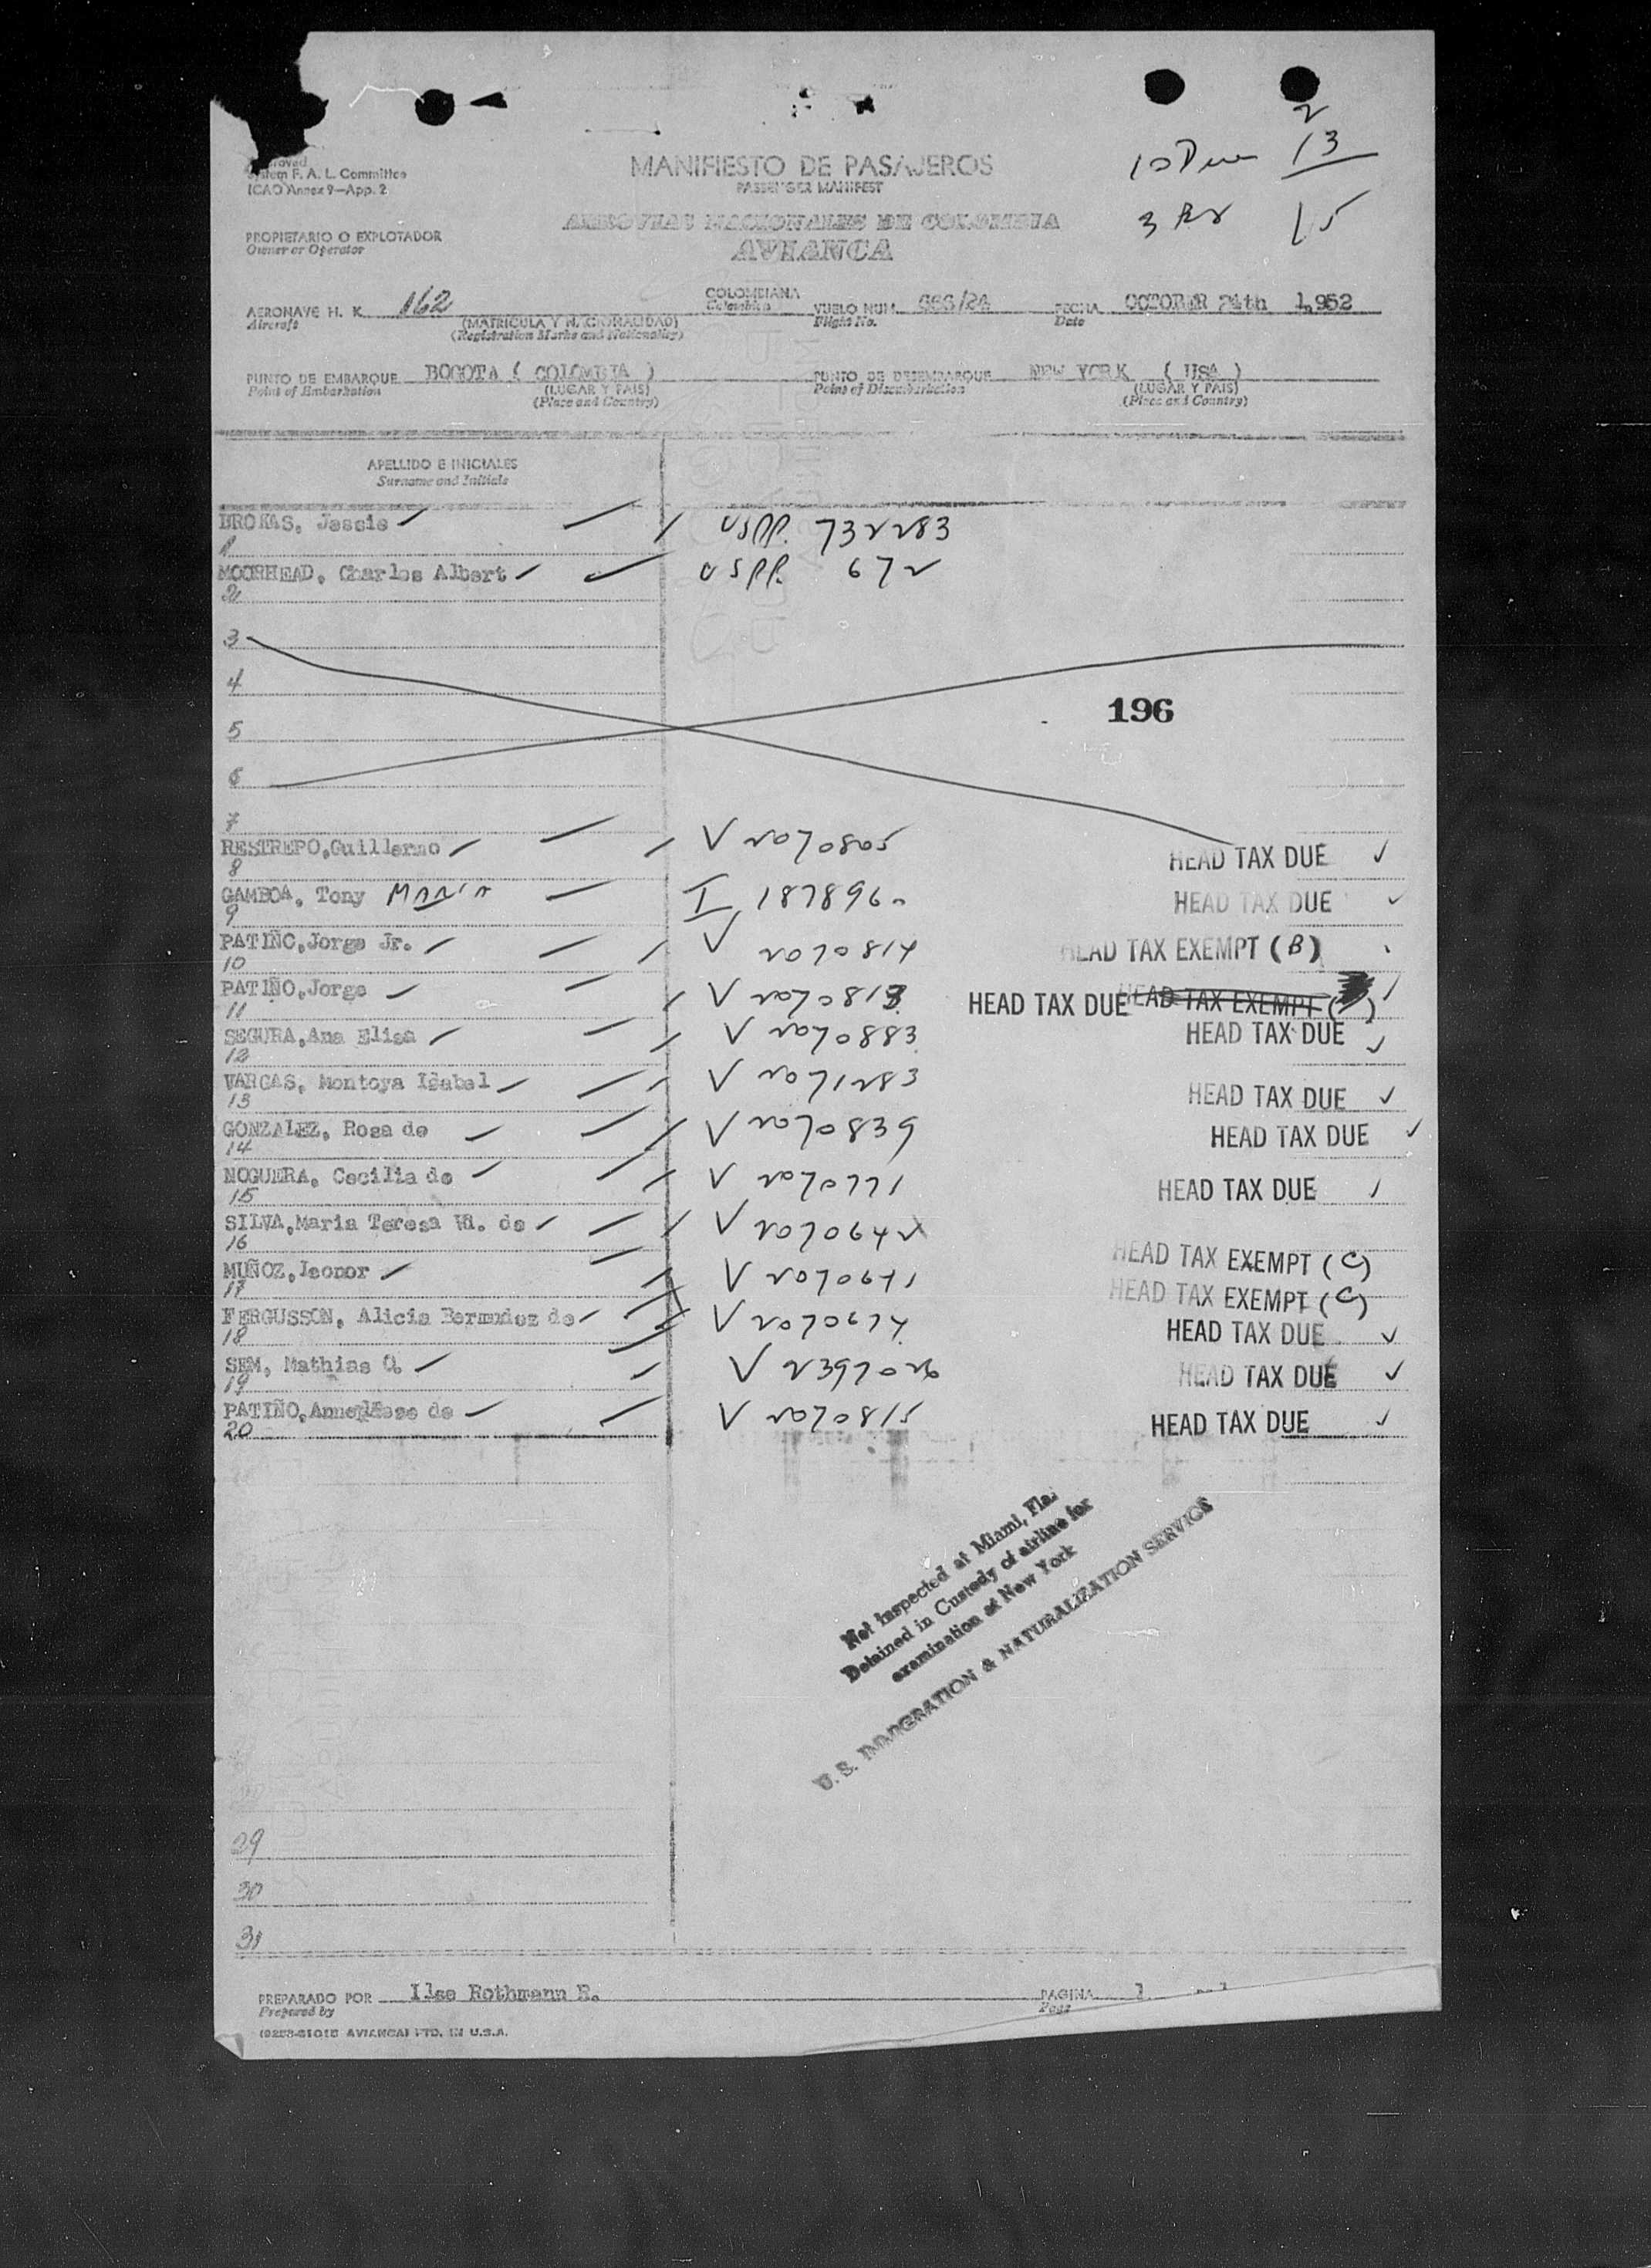 2
10 Due 13
3 Ex 15
System F. A. L. Committee
ICAO Annex 9—App. 2
MANIFIESTO DE PASAJEROS
PASSENGER MANIFEST
AEROVIAS NACIONALES DE COLOMBIA
AVIANCA
PROPIETARIO O EXPLOTADOR
Owner or Operator
AERONAVE H. K. 162 COLOMBIANA VUELO NUM. 666/24 FECHA OCTOBER 24th 1,952
Aircraft (MATRICULA Y NACIONALIDAD) Colombian Flight No. Date
(Registration Marks and Nationality)
PUNTO DE EMBARQUE BOGOTA ( COLOMBIA ) PUNTO DE DESEMBARQUE NEW YORK ( USA )
Point of Embarkation (LUGAR Y PAIS) Point of Disembarkation (LUGAR Y PAIS)
(Place and Country) (Place and Country)
APELLIDO E INICIALES
Surname and Initials
BROKAS, Jessie USPP. 732283
1
MOORHEAD, Charles Albert USPP. 672
2
3
4
196
5
6
7
RESTREPO,Guillermo V 2070805 HEAD TAX DUE
8
GAMBOA, Tony MARIA I 187896 HEAD TAX DUE
9
PATIÑO,Jorge Jr. V 2070814 HEAD TAX EXEMPT (B)
10
PATIÑO,Jorge V 2070813 HEAD TAX DUE HEAD TAX EXEMPT ( )
11
SEGURA,Ana Elisa V 2070883 HEAD TAX DUE
12
VARGAS, Montoya Isabel V 2071283 HEAD TAX DUE
13
GONZALEZ, Rosa de V 2070839 HEAD TAX DUE
14
NOGUERA, Cecilia de V 2070771 HEAD TAX DUE
15
SILVA,Maria Teresa Vd. de V 2070642 HEAD TAX EXEMPT (C)
16
MUÑOZ,Leonor V 2070641 HEAD TAX EXEMPT (C)
17
FERGUSSON, Alicia Bermudez de V 2070674 HEAD TAX DUE
18
SEM, Mathias O. V 2397026 HEAD TAX DUE
19
PATIÑO,Anneliese de V 2070815 HEAD TAX DUE
20
Not Inspected at Miami, Fla.
Detained in Custody of airline for
examination at New York
U. S. IMMIGRATION & NATURALIZATION SERVICE
29
30
31
PREPARADO POR Ilse Rothmann R. PAGINA 1
Prepared by Page
AVIANCA) PTD. IN U.S.A.